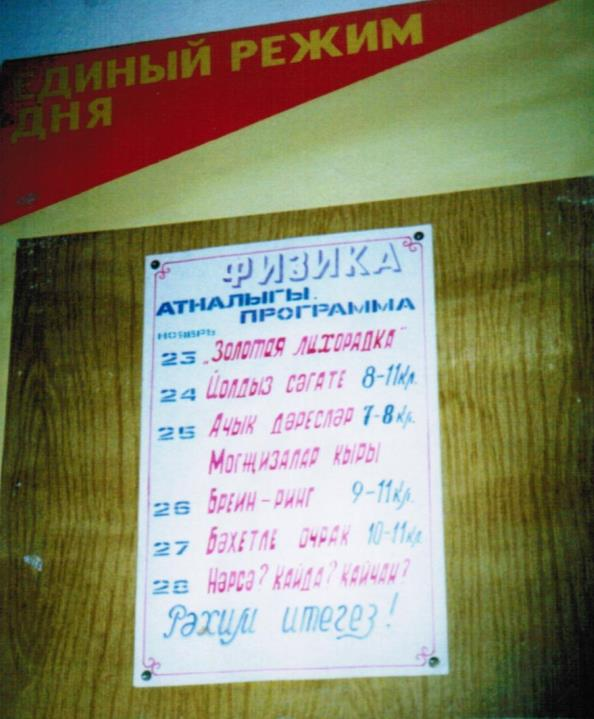 ЕДИНЫЙ РЕЖИМ
ДНЯ
ФИЗИКА
АТНАЛЫГЫ.
ПРОГРАММА
НОЯБРЬ
23 „Золотая лихорадка"
24 Йолдыз сәгате 8-11 кл.
25 Ачык дәресләр 7-8 кл.
Могҗизалар кыры
26 Бреин-ринг 9-11 кл.
27 Бәхетле очрак 10-11 кл
28 Нәрсә? Кайда? Кайчан?
Рәхим итегез!